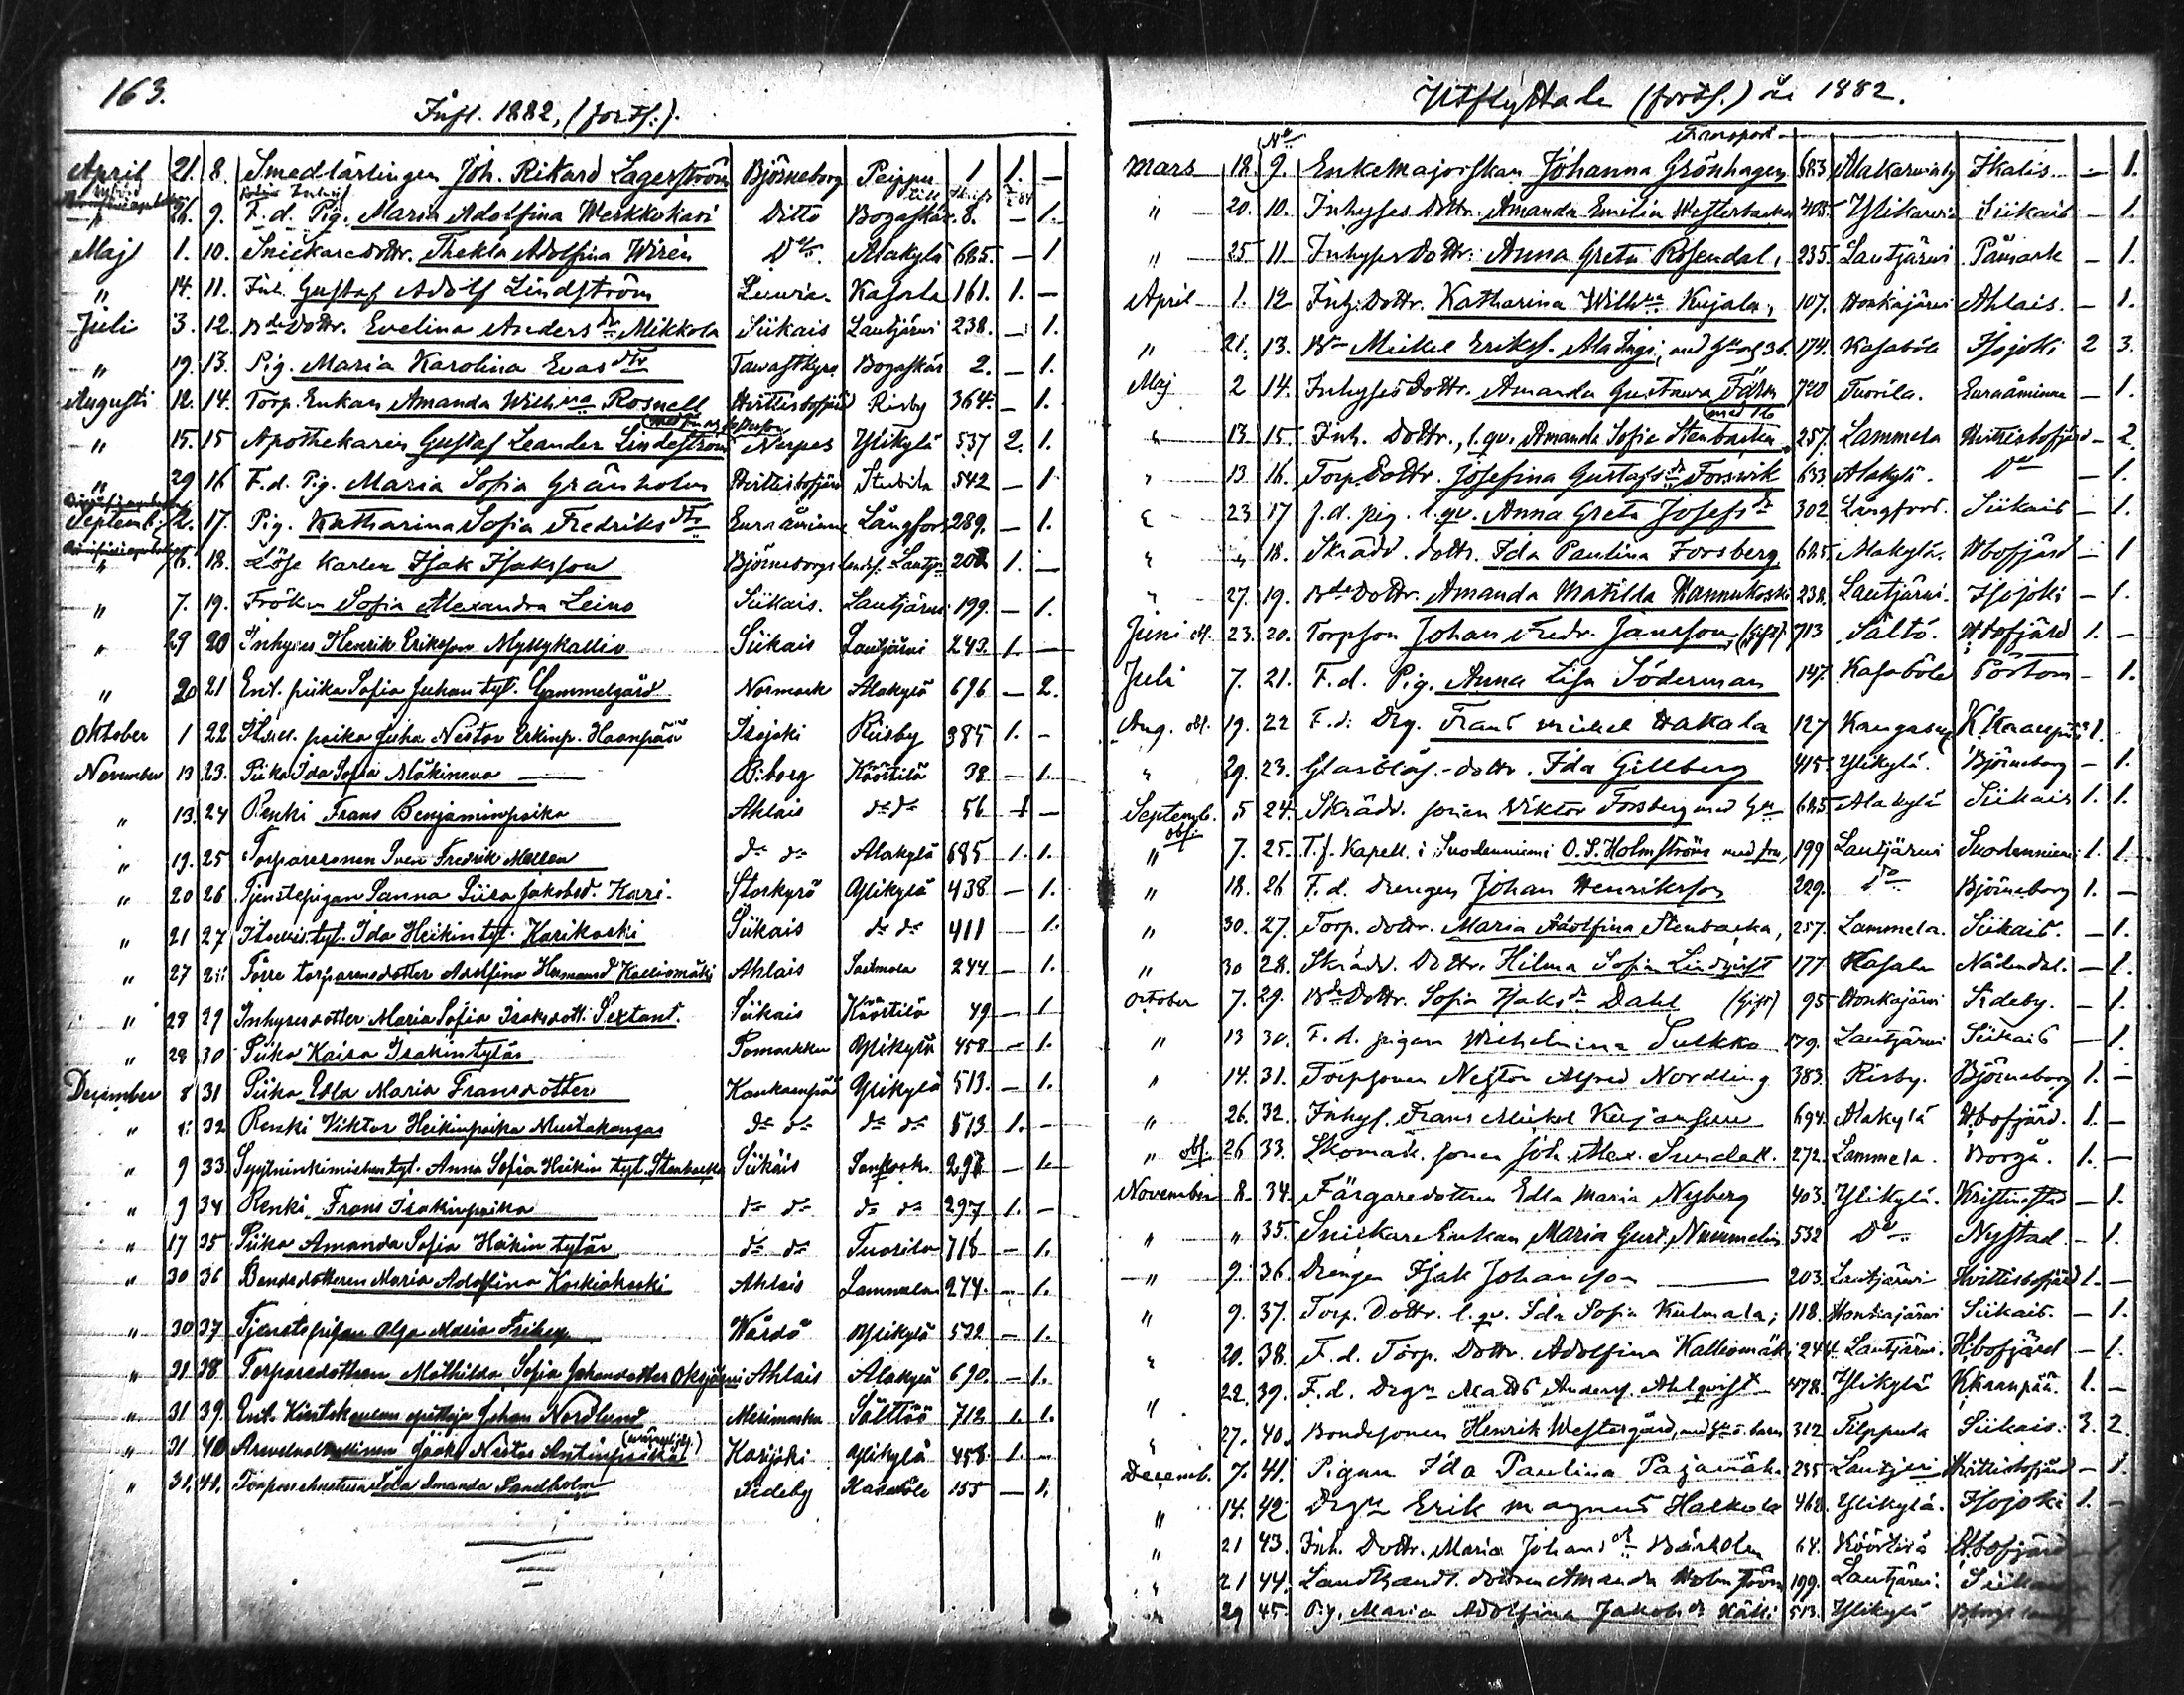 163.
Infl. 1882, (forts.).
April 21. 8. Smedlärlingen Joh. Rikard Lagerström Björneborg Peippu 1 1. —
" 26. 9. F. d. Pig. Maria Adolfina Werkkokari Ditto Bogaskär 8. — 1.
Maj 1. 10. Snickaredottr. Thekla Adolfina Wirén Dto Alakylä 685. — 1
" 14. 11. Inh. Gustaf Adolf Lindström Luvia. Kasala 161. 1. —
Juli 3. 12. Bdedottr. Evelina Andersdr Mikkola Siikais Lautjärvi 238. — 1.
" 19. 13. Pig. Maria Karolina Evasdtr Tavastkyro Bogaskär 2. — 1.
Augusti 12. 14. Torp. Enkan Amanda Wilhna Rosnell Hvittisbofjärd Risby 364. — 1.
" 15. 15 Apothekaren Gustaf Leander Lindeström Nerpes Ylikylä 537 2. 1.
" 29 16 F. d. Pig. Maria Sofia Gränholm Hvittisbofjärd Stubila 542 — 1
Septemb. 2. 17. Pig. Katharina Sofia Fredriksdtr Euraåminne Långfors 289. — 1.
" 6. 18. Löse Karlen Isak Isaksson Björneborgs landsf. Lautjvi 208 1. —
" 7. 19. Fröken Sofia Alexandra Leino Siikais. Lautjärvi 199. — 1.
" 29 20 Inhyses Henrik Eriksson Myllykallio Siikais Lautjärvi 243. 1. —
" 20 21 Ent. piika Sofia Juhan tyt. Gammelgård Normark Alakylä 696 — 2.
Oktober 1 22 Itsell. poika Juha Nestor Erkinp. Haanpää Isojoki Riisby 385 1. -
November 13 23. Piika Ida Sofia Mäkineva Björneborg Köörtilä 38 — 1.
" 13. 24 Renki Frans Benjaminpoika Ahlais do do 56 1 —
" 19. 25 Torparesonen Sven Fredrik Mellen do do Alakylä 685 1. 1.
" 20 26 Tjenstepigan Sanna Liisa Jakobsd. Kari. Storkyrö Ylikylä 438 — 1.
" 21 27 Itsellis. tyt. Ida Heikin tyt. Karikoski Siikais do do 411 — 1.
" 27 28 Förre torparensdotter Adolfina Hermansd Kalliomäki Ahlais Sailmola 244 — 1.
" 28 29 Inhysesdotter Maria Sofia Isaksdott. Sextant. Siikais Köörtilä 49 — 1.
" 28 30 Piika Kaisa Isakintytär Pomarkku Ylikylä 458 — 1.
December 8 31 Piika Edla Maria Fransdotter Kankaanpää Ylikylä 513. — 1.
" 8 32 Renki Viktor Heikinpoika Mustakangas do do do do 513 1. —
" 9 33. tyt. Anna Sofia Heikin tyt. Stenbacka Siikais 297 — 1.
" 9 34 Renki Frans Isakinpoika do do do do 297 1. -
" 17 35 Piika Amanda Sofia Heikin tytär do do Tuorila 718 - 1.
" 30 36 Bondedotteren Maria Adolfina Koskiokoski Ahlais Lammela 274. — 1.
" 30 37 Tjenstepigan Olga Maria Friberg Wårdö Ylikylä 532 — 1.
" 31 38 Torparedottren Mathilda Sofia Johansdotter Oksjärvi Ahlais Alakylä 690. — 1.
" 31 39. Ent. Kiertokoulun opettaja Johan Nordlund Merimasku Sälttöö 712 1. 1.
" 31 40 Jaak Nestor Antinpoika Karijoki Ylikylä 458. 1. —
" 31. 41. Ida Amanda Sandholm Sideby Kasaböle 155 — 1.
Utflyttade (forts.) år 1882.
No Transport
Mars 18. 9. Enkemajorskan Johanna Grönhagen 683 Alakarviaby Ikalis. — 1.
" 20. 10. Inhyses Dottr. Amanda Emilia Westerbacka 408. Ylikarvia Siikais — 1.
" 25 11 Inhyses Dottr. Anna Greta Rosendal, 235. Lautjärvi Påmark — 1.
April 1. 12 Inh. Dottr. Katharina Wilhna Kujala, 107. Honkajärvi Ahlais. — 1.
" 21. 13. Bn Mickel Eriks. Ala Ingi, med Hu o. 3 b. 174. Kasaböle Isojoki 2 3.
Maj 2 14. Inhyses Dottr. Amanda Gustava Färm 720 Tuorila. Euraåminne — 1.
" 13 15. Inh. Dottr., l. qv. Amanda Sofia Stenbacka 257. Lammela Hvittisbofjärd — 2.
" 13 16. Torp. Dottr. Josefina Gustafsdr Forsvik 633 Alakylä. Do — 1.
" 23 17 f. d. pig. l. qv. Anna Greta Josefsdr 302 Långfors. Siikais — 1.
" " 18. Skrädd. dottr. Ida Paulina Forsberg 685 Alakylä. Hbofjärd — 1
" 27. 19. Bde Dottr. Amanda Matilda Hannukoski 238. Lautjärvi. Isojoki — 1.
Juni obs. 23. 20. Torpson Johan Fredr. Jansson, (gift). 713 Sältö. Hbofjärd 1. —
Juli 7. 21. F. d. Pig. Anna Lisa Söderman 147. Kasaböle Pörtom — 1.
Aug. obs. 19. 22 F. d. Drg. Frans Mickel Hakala 127 Kangas Kkaanpää 1.
" 29. 23. Glasblås.-dottr. Ida Gillberg 415. Ylikylä. Björneborg — 1.
Septemb. 5 24. Skrädd. sonen Viktor Forsberg med Hu 685 Alakylä Siikais 1. 1.
obs. " 7. 25. T. f. Kapell. i Suodenniemi O. S. Holmström med fru, 199 Lautjärvi Suodenniemi 1. 1.
" 18. 26 F. d. drengen Johan Henriksson 229. Do Björneborg 1. —
" 30. 27. Torp. dottr. Maria Adolfina Stenbacka, 257. Lammela. Siikais. — 1.
" 30 28. Skrädd. Dottr. Hilma Sofia Lindqvist 177 Kasala Nådendal. — 1.
October 7. 29. Bde Dottr. Sofia Isaksdr Dahl (Gift) 95 Honkajärvi Sideby. — 1.
" 13 30. F. d. pigan Wilhelmina Sulkko 179. Lautjärvi Siikais — 1.
" 14. 31. Torpsonen Nestor Alfred Nordling 383. Risby. Björneborg 1. —
" 26. 32. Inhys. Frans Mickel Kujansuu 694. Alakylä Hbofjärd. 1. —
" obs. 26 33. Skomak. sonen Joh. Alex. Sundell. 272. Lammela. Borgå. 1. —
November 8. 34. Färgaredottren Edla Maria Nyberg 403. Ylikylä. Kristinestad — 1.
" " 35. Snickare Enkan Maria Gust. Nummelin 532 Do Nystad. — 1.
" 9. 36. Drengen Isak Johansson 203. Lautjärvi Hvittisbofjärd 1. —
" 9. 37. Torp. Dottr. l. qv. Ida Sofia Kulmala; 118. Honkajärvi Siikais. — 1.
" 20. 38. F. d. Torp. Dottr. Adolfina Kalliomäki 244. Lautjärvi. Hbofjärd — 1.
" 22. 39. F. d. Drgn Matts Anders. Ahlqvist 478. Ylikylä Kkaanpää. 1. —
" 27. 40. Bondesonen Henrik Westergård, med Hu o. barn 312 Filppula Siikais. 3. 2.
Decemb. 7. 41. Pigan Ida Paulina Pajamäki 235 Lautjvi Hvittisbofjärd — 1.
" 14. 42 Drgn Erik Magnus Halkola 462. Ylikylä. Isojoki 1. -
" 21 43. Inh. Dottr. Maria Johansdr 64. Köörtilä Hbofjärd
" 21 44. Landthandl. dottren Amanda Holmström 199. Lautjärvi. Siikais
" 29 45. Pig. Maria Adolfina Jakobsdr Källi 513. Ylikylä